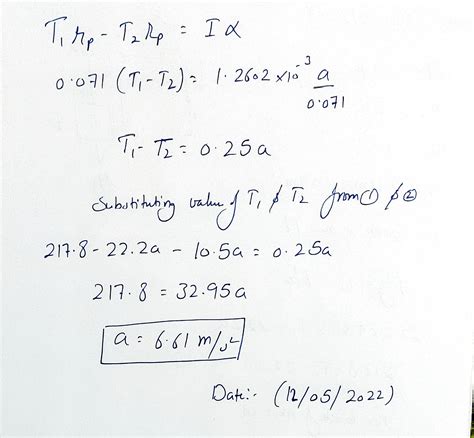 T₁ r_p - T₂ r_p = I α
0.071 (T₁-T₂) = 1.2602 × 10⁻³ a/0.071
T₁ - T₂ = 0.25a
Substituting value of T₁ & T₂ from ① & ②
217.8 - 22.2a - 10.5a = 0.25a
217.8 = 32.95a
a = 6.61 m/s²
Date:- (12/05/2022)